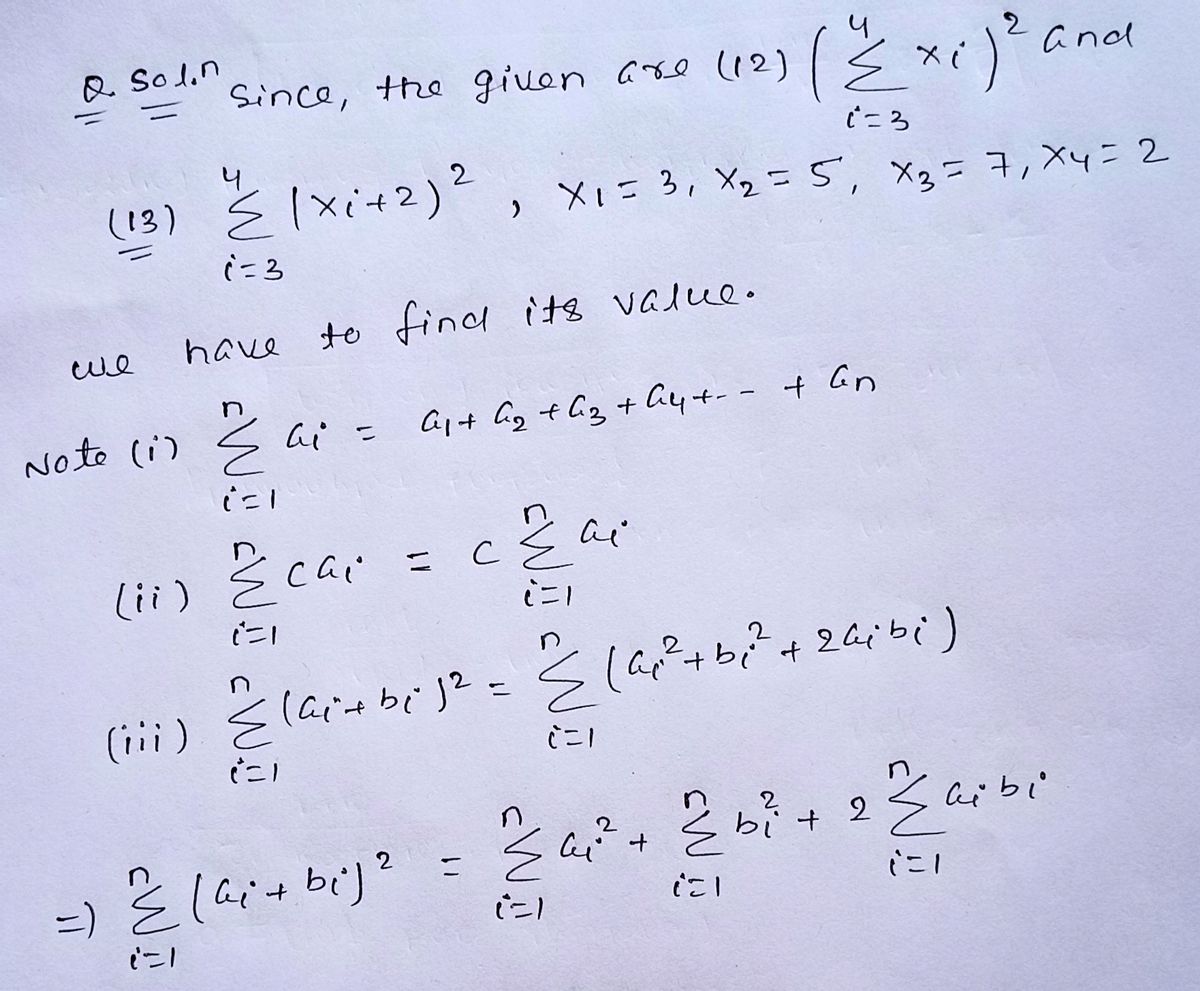 Q. Sol.n Since, the given are (12) (∑_{i=3}^{4} xi)² and
(13) ∑_{i=3}^{4} (xi+2)², x₁=3, x₂=5, x₃=7, x₄=2
we have to find its value.
Note (i) ∑_{i=1}^{n} ai = a₁+a₂+a₃+a₄+-- + an
(ii) ∑_{i=1}^{n} cai = c ∑_{i=1}^{n} ai
(iii) ∑_{i=1}^{n} (ai+bi)² = ∑_{i=1}^{n} (ai²+bi²+2aibi)
=) ∑_{i=1}^{n} (ai+bi)² = ∑_{i=1}^{n} ai² + ∑_{i=1}^{n} bi² + 2 ∑_{i=1}^{n} aibi